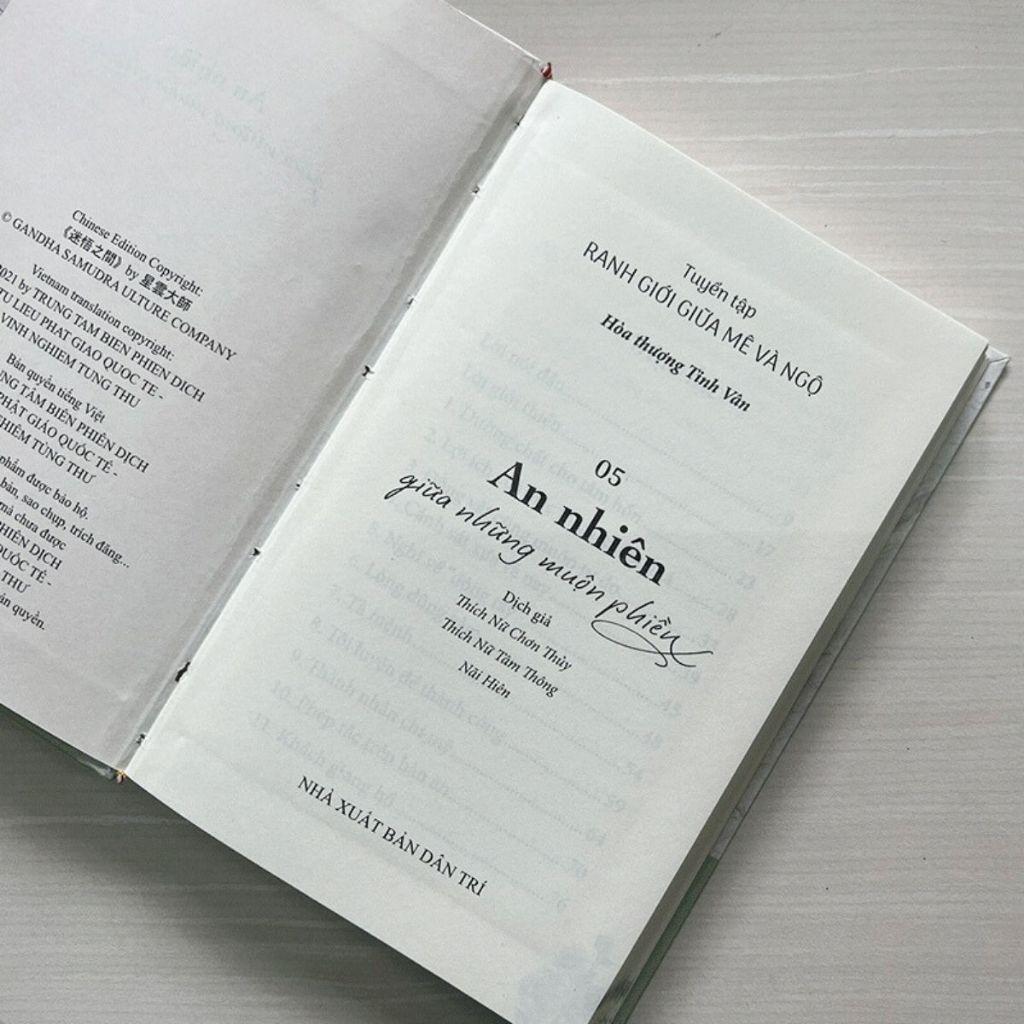 Chinese Edition Copyright:
《迷悟之間》 by 星雲大師
© GANDHA SAMUDRA ULTURE COMPANY
Vietnam translation copyright:
2021 by TRUNG TAM BIEN PHIEN DICH
TU LIEU PHAT GIAO QUOC TE -
VINH NGHIEM TUNG THU
Bản quyền tiếng Việt
TÂM BIÊN PHIÊN DỊCH
PHẬT GIÁO QUỐC TẾ -
TÙNG THƯ
phẩm được bảo hộ.
bản, sao chụp, trích đăng...
mà chưa được
PHIÊN DỊCH
QUỐC TẾ -
THƯ
quyền.
Tuyển tập
RANH GIỚI GIỮA MÊ VÀ NGỘ
Hòa thượng Tinh Vân
05
An nhiên
giữa những muộn phiền
Dịch giả
Thích Nữ Chơn Thủy
Thích Nữ Tâm Thông
Nãi Hiên
NHÀ XUẤT BẢN DÂN TRÍ